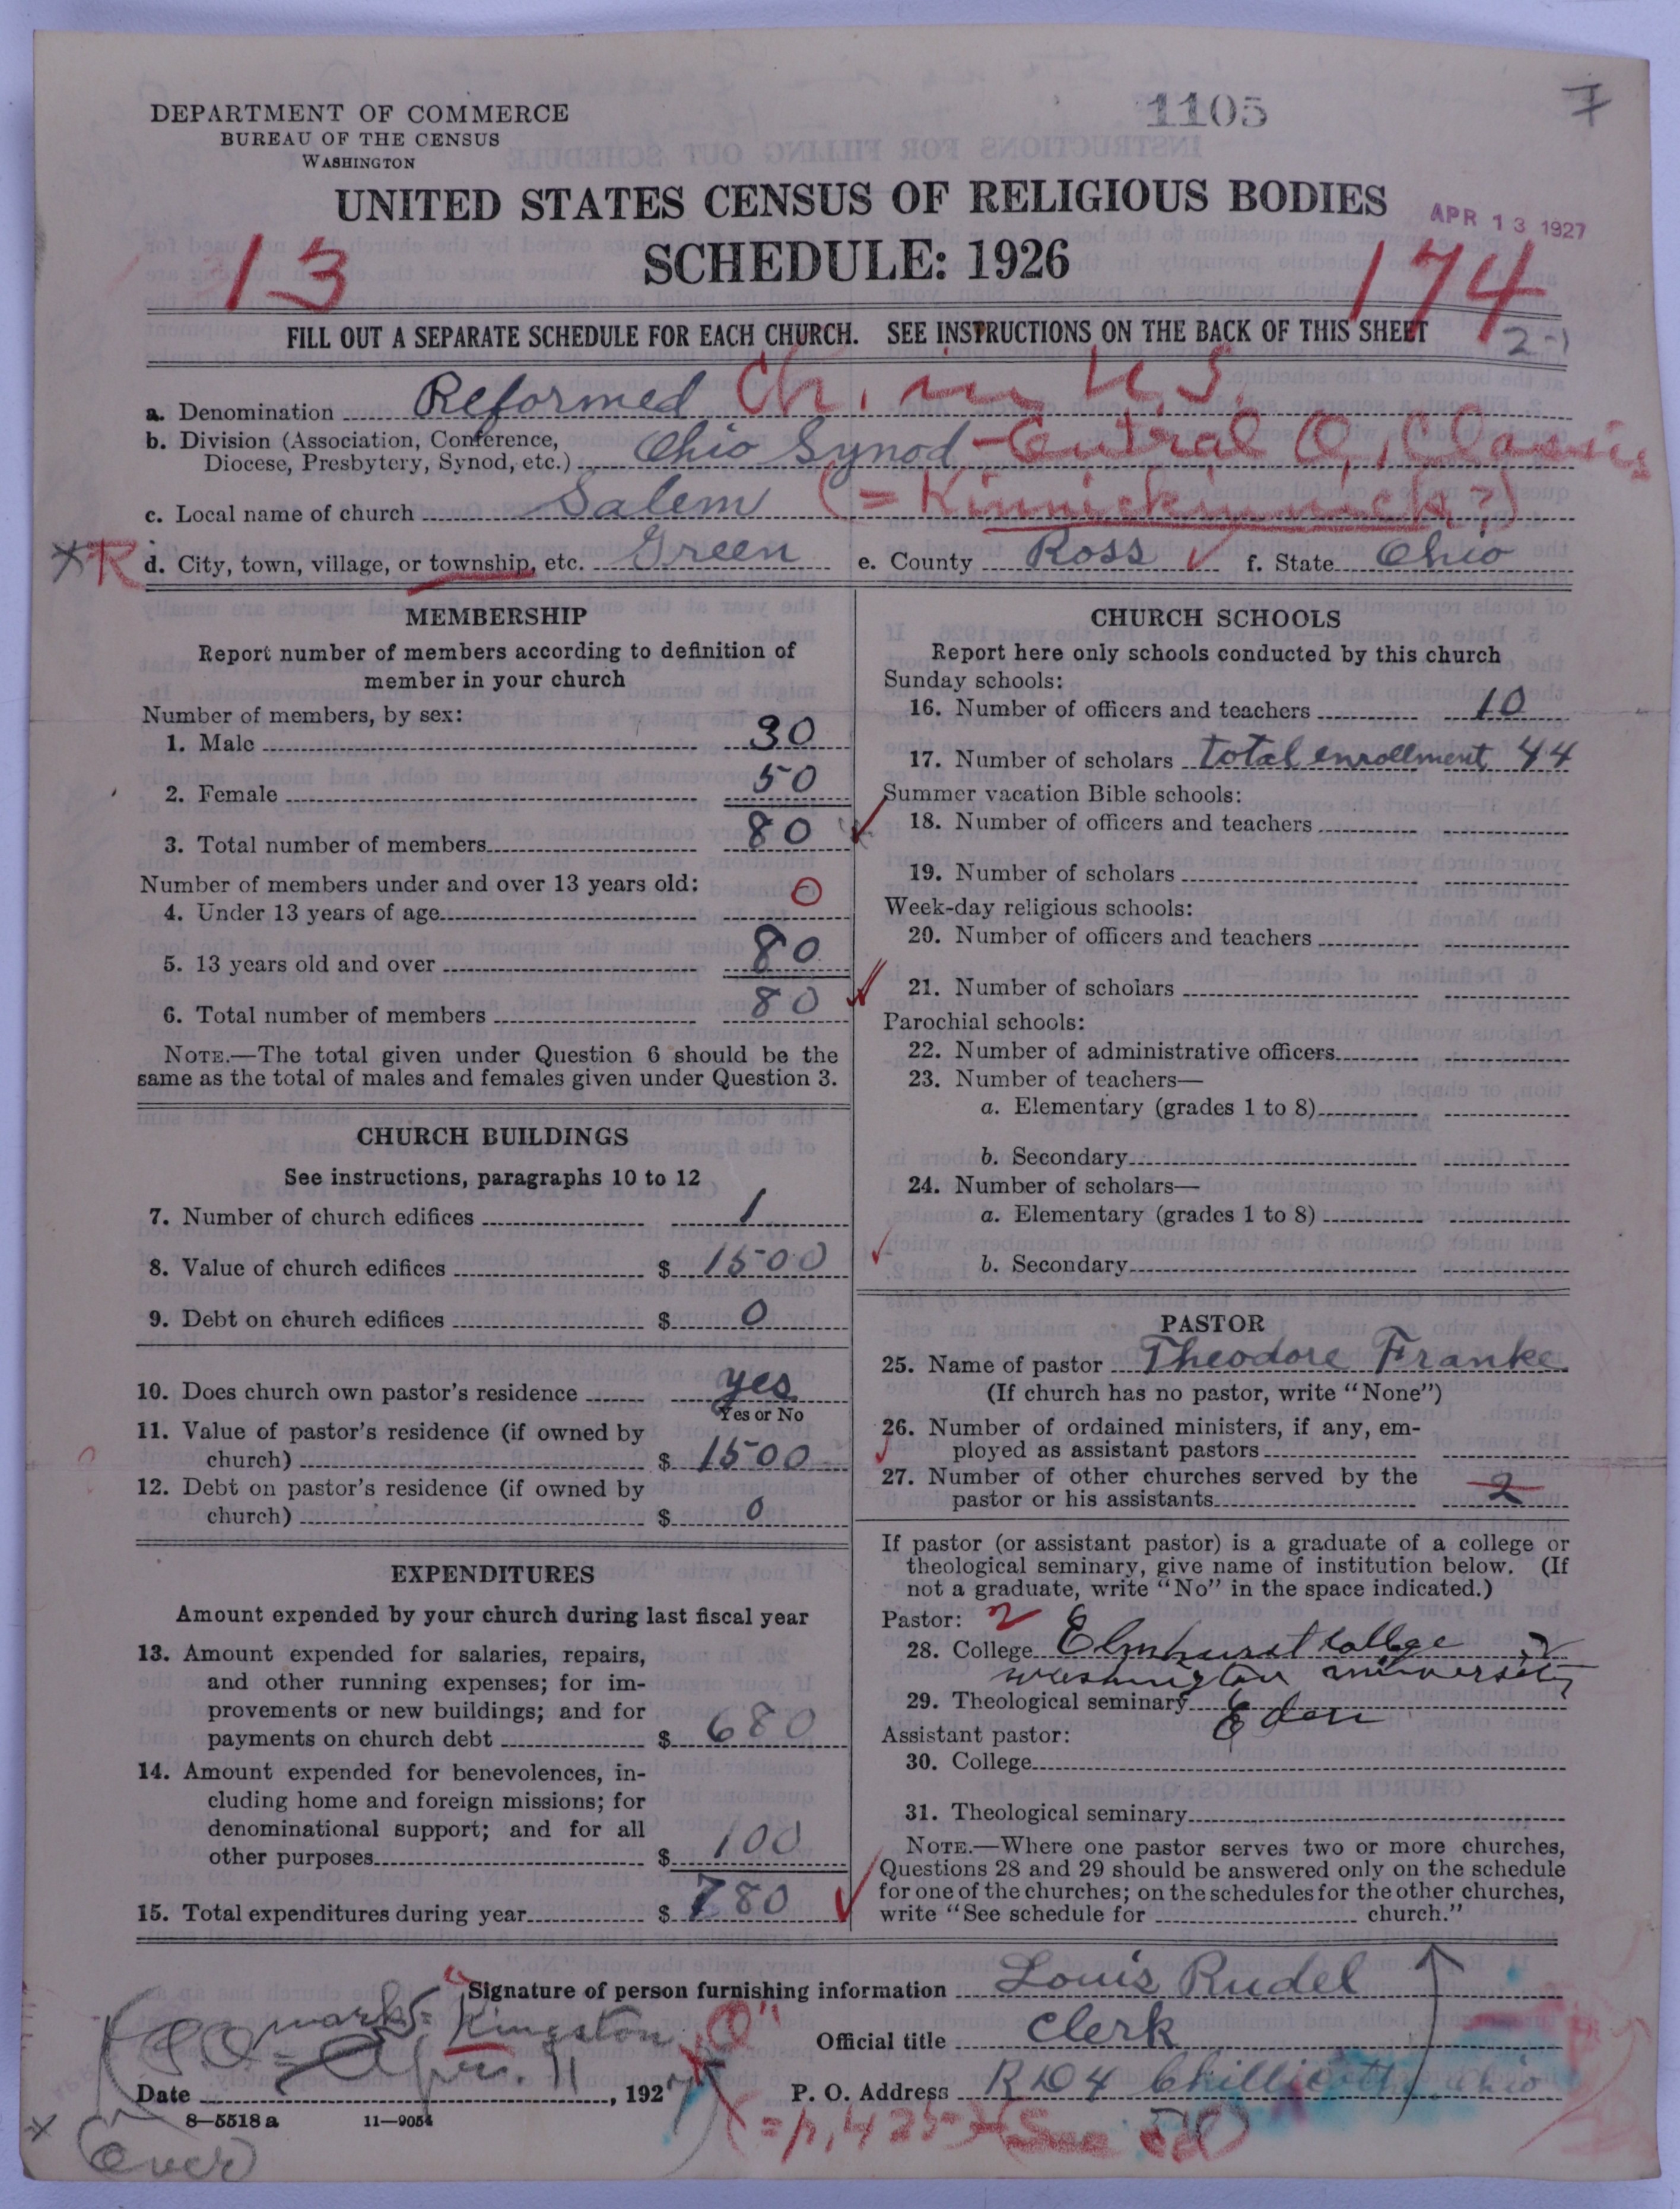 1105
7
DEPARTMENT OF COMMERCE
BUREAU OF THE CENSUS
WASHINGTON
UNITED STATES CENSUS OF RELIGIOUS BODIES
APR 13 1927
13 SCHEDULE: 1926 174
FILL OUT A SEPARATE SCHEDULE FOR EACH CHURCH. SEE INSTRUCTIONS ON THE BACK OF THIS SHEET
2-1
a. Denomination Reformed Ch. in U.S.
b. Division (Association, Conference,
Diocese, Presbytery, Synod, etc.) Ohio Synod - Central O. Classis
c. Local name of church Salem (= Kinnickinnick?)
*R d. City, town, village, or township, etc. Green e. County Ross f. State Ohio
MEMBERSHIP
Report number of members according to definition of
member in your church
Number of members, by sex:
1. Male 30
2. Female 50
3. Total number of members 80
Number of members under and over 13 years old:
4. Under 13 years of age 0
5. 13 years old and over 80
6. Total number of members 80
NOTE.—The total given under Question 6 should be the
same as the total of males and females given under Question 3.
CHURCH BUILDINGS
See instructions, paragraphs 10 to 12
7. Number of church edifices 1
8. Value of church edifices $ 1500
9. Debt on church edifices $ 0
10. Does church own pastor's residence yes
Yes or No
11. Value of pastor's residence (if owned by
church) $ 1500
12. Debt on pastor's residence (if owned by
church) $ 0
EXPENDITURES
Amount expended by your church during last fiscal year
13. Amount expended for salaries, repairs,
and other running expenses; for im-
provements or new buildings; and for
payments on church debt $ 680
14. Amount expended for benevolences, in-
cluding home and foreign missions; for
denominational support; and for all
other purposes $ 100
15. Total expenditures during year $ 780
CHURCH SCHOOLS
Report here only schools conducted by this church
Sunday schools:
16. Number of officers and teachers 10
17. Number of scholars total enrollment 44
Summer vacation Bible schools:
18. Number of officers and teachers
19. Number of scholars
Week-day religious schools:
20. Number of officers and teachers
21. Number of scholars
Parochial schools:
22. Number of administrative officers
23. Number of teachers—
a. Elementary (grades 1 to 8)
b. Secondary
24. Number of scholars—
a. Elementary (grades 1 to 8)
b. Secondary
PASTOR
25. Name of pastor Theodore Franke
(If church has no pastor, write "None")
26. Number of ordained ministers, if any, em-
ployed as assistant pastors
27. Number of other churches served by the
pastor or his assistants 2
If pastor (or assistant pastor) is a graduate of a college or
theological seminary, give name of institution below. (If
not a graduate, write "No" in the space indicated.)
Pastor: 2
28. College Elmhurst College
Washington University
29. Theological seminary Eden
Assistant pastor:
30. College
31. Theological seminary
NOTE.—Where one pastor serves two or more churches,
Questions 28 and 29 should be answered only on the schedule
for one of the churches; on the schedules for the other churches,
write "See schedule for church."
Signature of person furnishing information Louis Rudel
mark= Kingston, O"
Official title Clerk
Date Apr. 11, 1927 P. O. Address R D 4 Chillicothe Ohio
8—5518 a 11—9054
(Over)